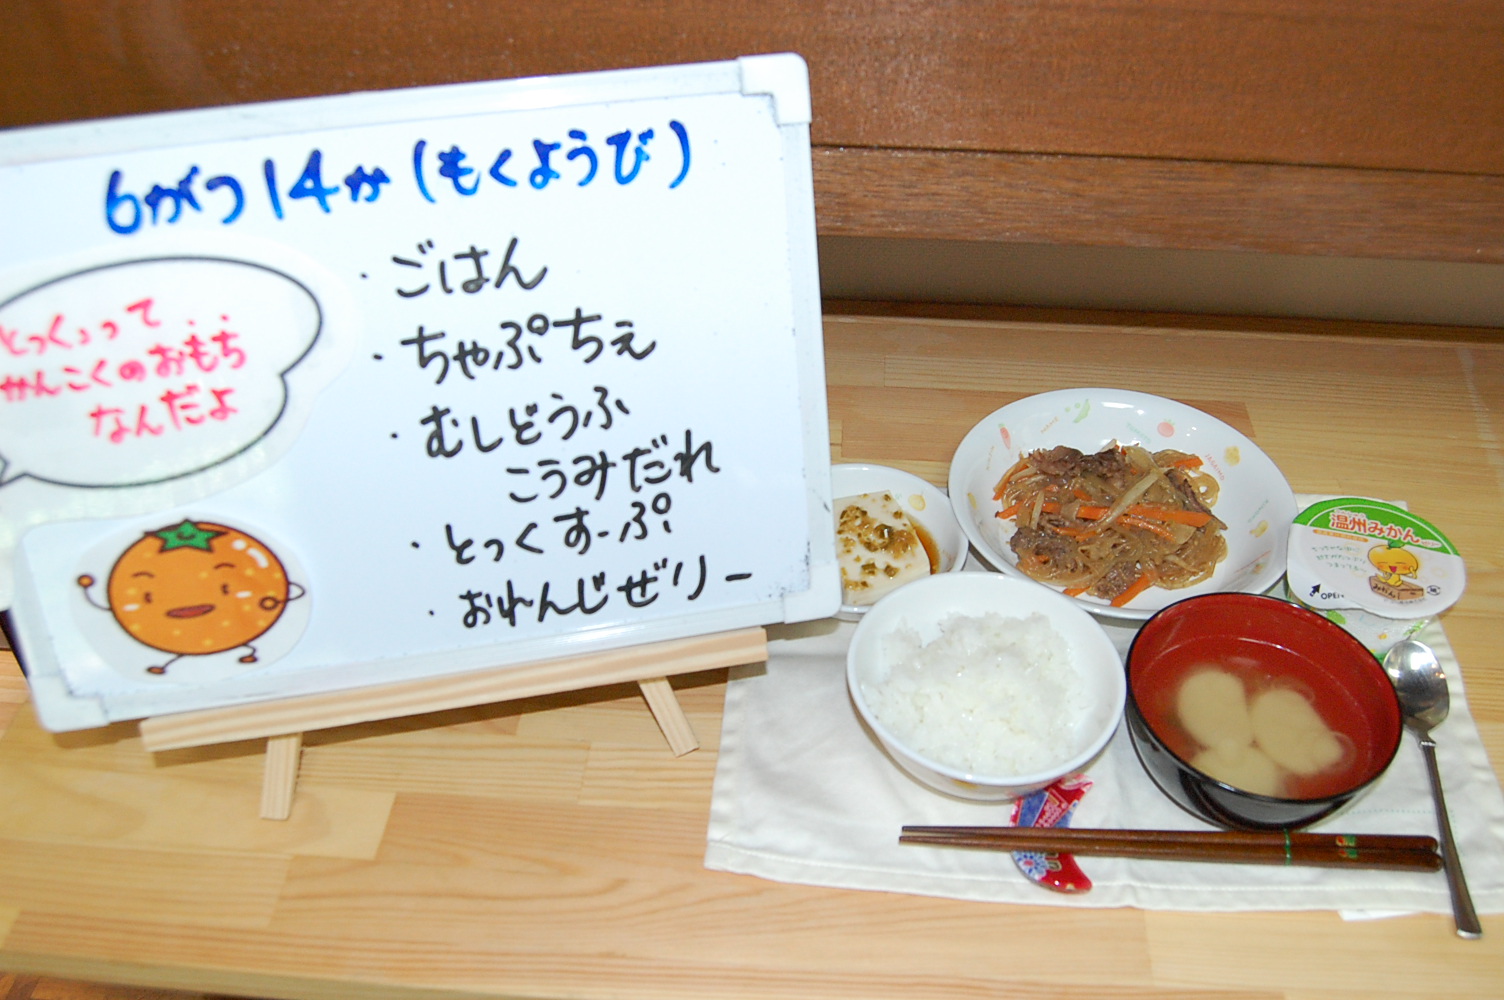 6がつ14か(もくようび)
とっくって
かんこくのおもち
なんだよ
・ごはん
・ちゃぷちぇ
・むしどうふ
こうみだれ
・とっくすーぷ
・おれんじぜりー
温州みかん
みかん
OPEN